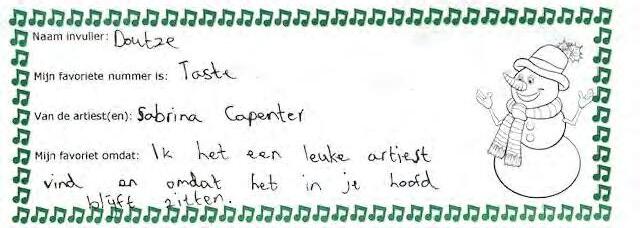 Naam invuller: Doutze
Mijn favoriete nummer is: Taste
Van de artiest(en): Sabrina Capenter
Mijn favoriet omdat: Ik het een leuke artiest
vind en omdat het in je hoofd
blijft zitten.